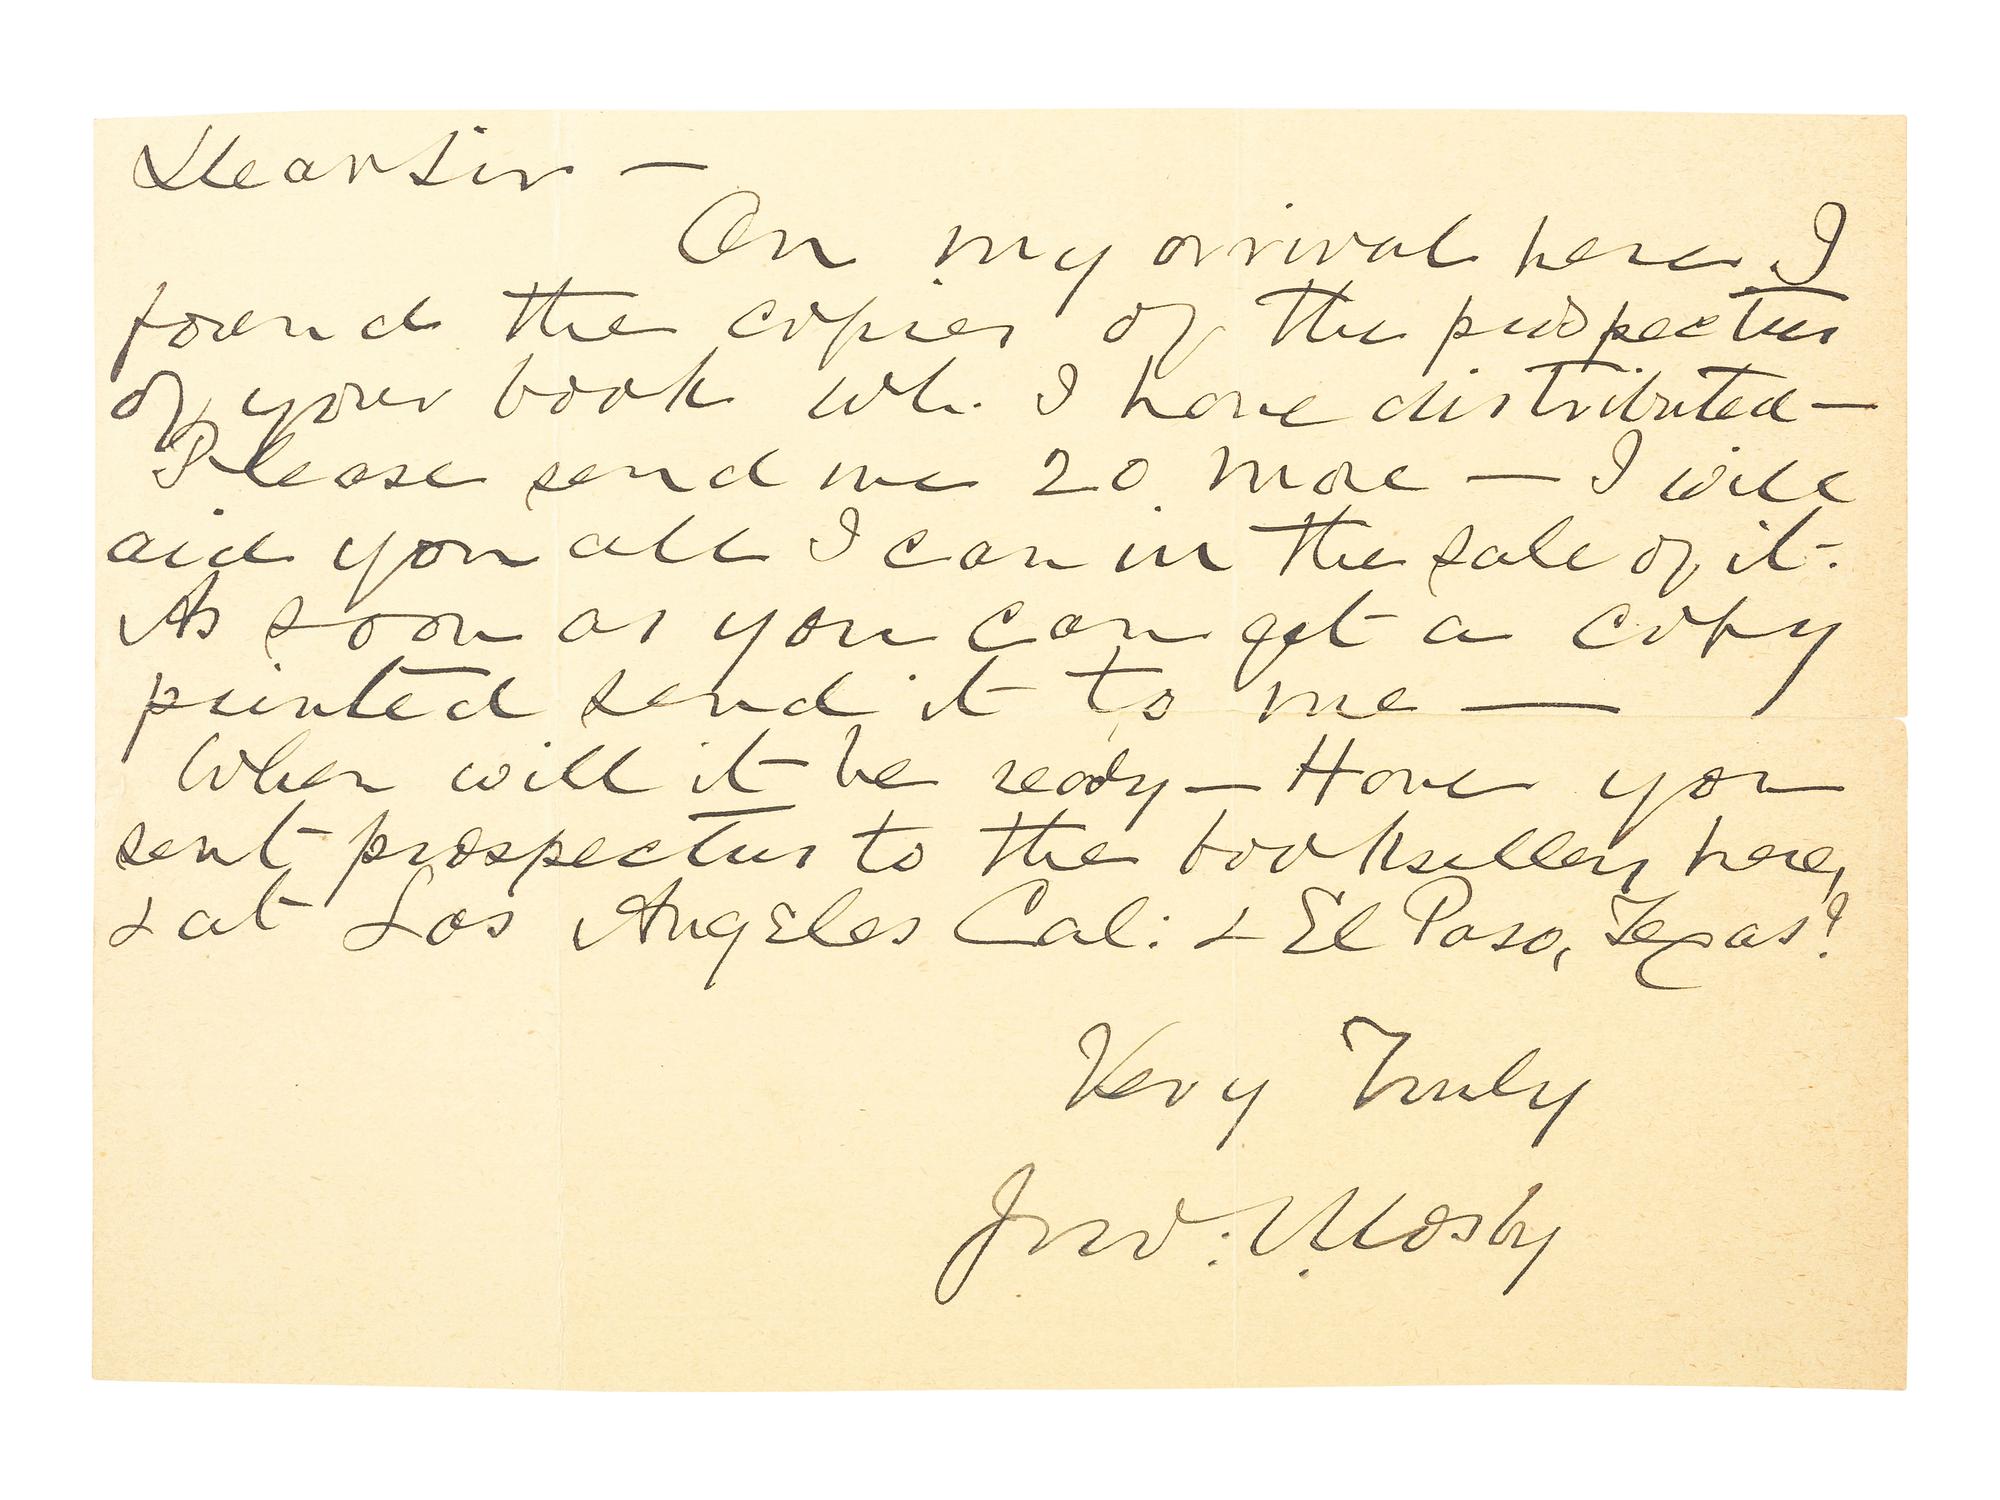 Dear Sir —
On my arrival here I
found the copies of the prospectus
of your book wh. I have distributed —
Please send me 20 more — I will
aid you all I can in the sale of it.
As soon as you can get a copy
printed send it to me —
When will it be ready — Have you
sent prospectus to the booksellers here,
& at Los Angeles Cal: & El Paso, Texas?
Very Truly
Jno: S. Mosby